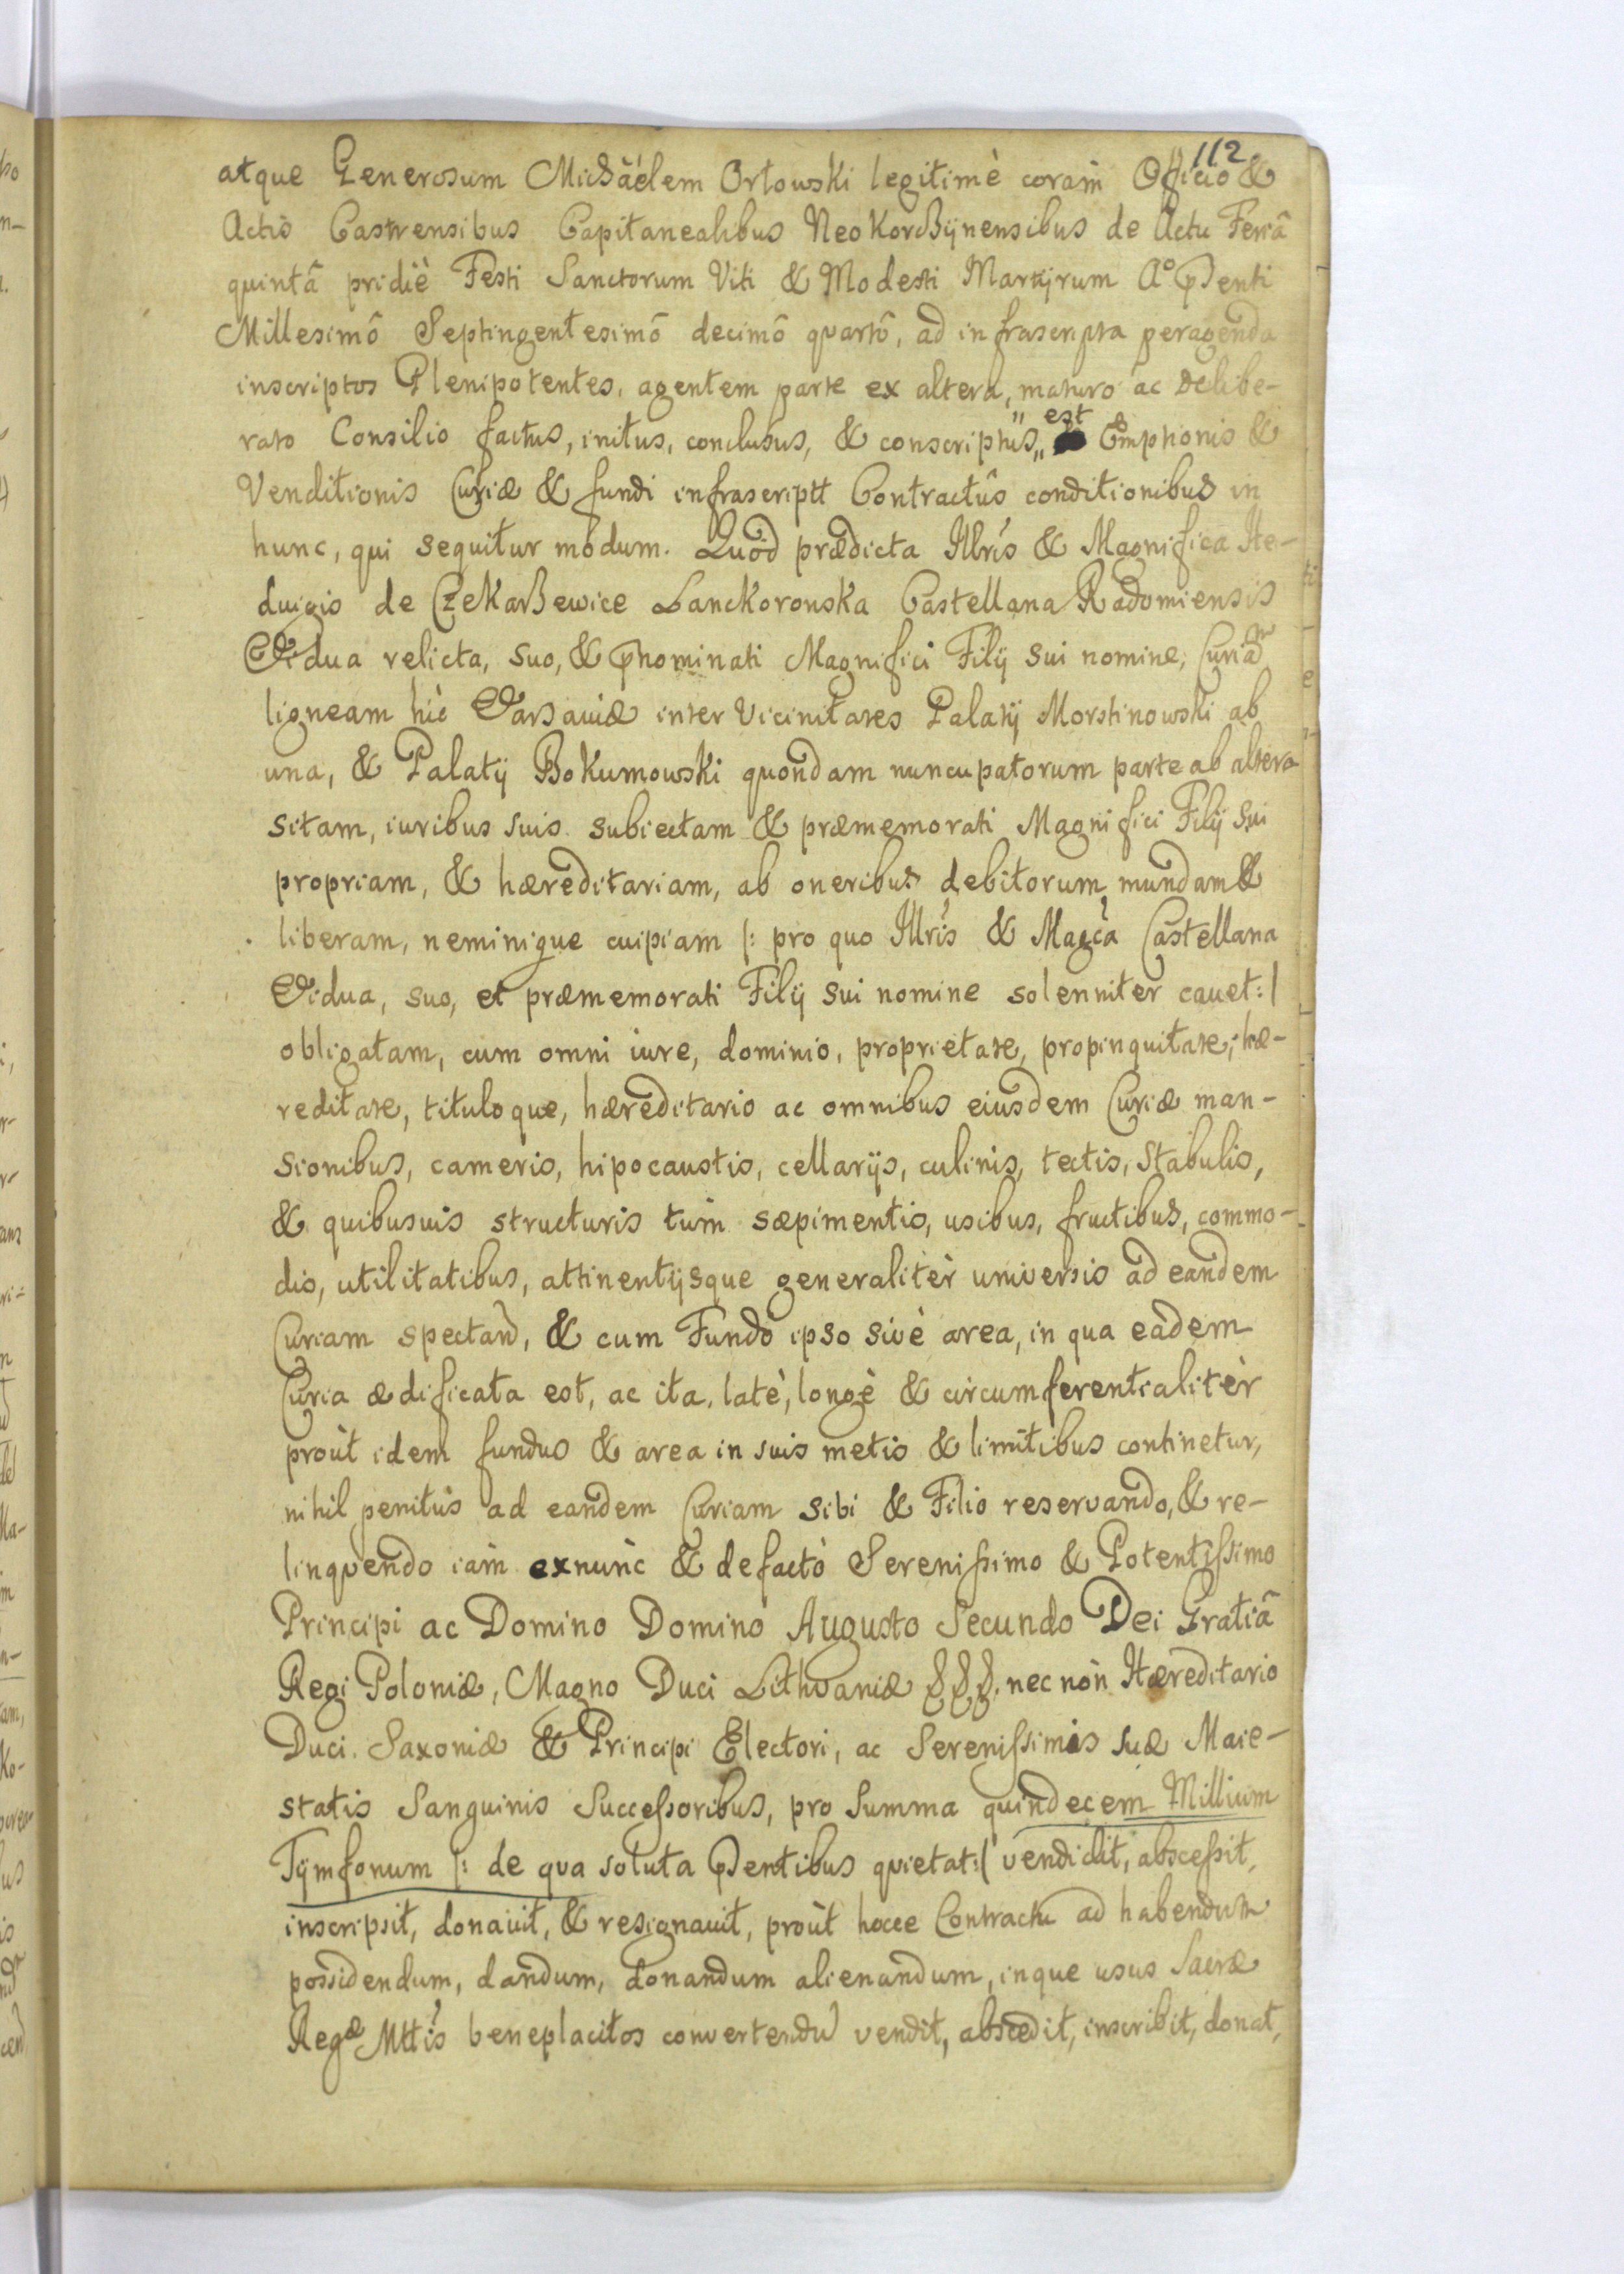 112
atque Generosum Michàélem Orłowski legitimè coram̀ Officio &
Actis Castrensibus Capitanealibus NeoKorczÿnensibus de Actu Feriâ
quintâ pridiè Festi Sanctorum Viti & Modesti Martÿrum A° Psenti
Millesimô Septingentesimô decimô quartô, ad infrascripta peragenda
inscriptos Plenipotentes, agentem parte ex altera, maturo ac Delibe-
rato Consilio factus, initus, conclusus, & conscriptus„ est Emptionis &
Venditionis Curiæ & fundi infrascriptt Contractûs conditionibus in
hunc, qui sequitur modum. Quòd prædicta Illris & Magnifica He-
duigis de CzeKarzewice Lanckoronska Castellana Radomiensis
Vidua relicta, suo, & Pnominati Magnifici Filÿ sui nomine, Curiam
ligneam hìc Varsaviæ inter Vicinitates Palatÿ Morstinowski ab
una, & Palatÿ BoKumowski quondam nuncupatorum parte ab altera
sitam, iuribus suis subiectam & præmemorati Magnifici Filÿ sui
propriam, & hæreditariam, ab oneribus debitorum mundam &
liberam, neminique cuipiam |: pro quo Illris & Magca Castellana
Vidua, suo, et præmemorati Filÿ sui nomine solenniter cauet :|
obligatam, cum omni iure, dominio, proprietate, propinquitate, hæ-
reditate, tituloque, hæreditario ac omnibus eiusdem Curiæ man-
sionibus, cameris, hipocaustis, cellarÿs, culinis, tectis, stabulis,
& quibusuis structuris tùm sæpimentis, usibus, fructibus, commo-
dis, utilitatibus, attinentÿsque generalitèr universis ad eandem
Curiam spectand, & cum Fundo ipso sivè area, in qua eadem
Curia ædificata est, ac ita, latè, longè & circumferentialitèr
proùt idem fundus & area in suis metis & limitibus continetur,
nihil penitùs ad eandem Curiam sibi & Filio reservando, & re-
linquendo iàm exnùnc & defactò Serenissimo & Potentissimo
Principi ac Domino Domino Augusto Secundo Dei Gratiâ
Regi Poloniæ, Magno Duci Lithvaniæ &&&. nec nòn Hæreditario
Duci Saxoniæ & Principi Electori, ac Serenissimis suæ Maie-
statis Sanguinis Successoribus, pro Summa quindecem Millium
Tÿmfonum |: de qua soluta Psentibus quietat :| vendidit, abscessit,
inscripsit, donauit, & resignauit, proùt hocce Contractu ad habendum
possidendum, dandum, donandum alienandum, inque usus Sacræ
Regæ Mttis beneplacitos convertendu vendit, abscedit, inscribit, donat,